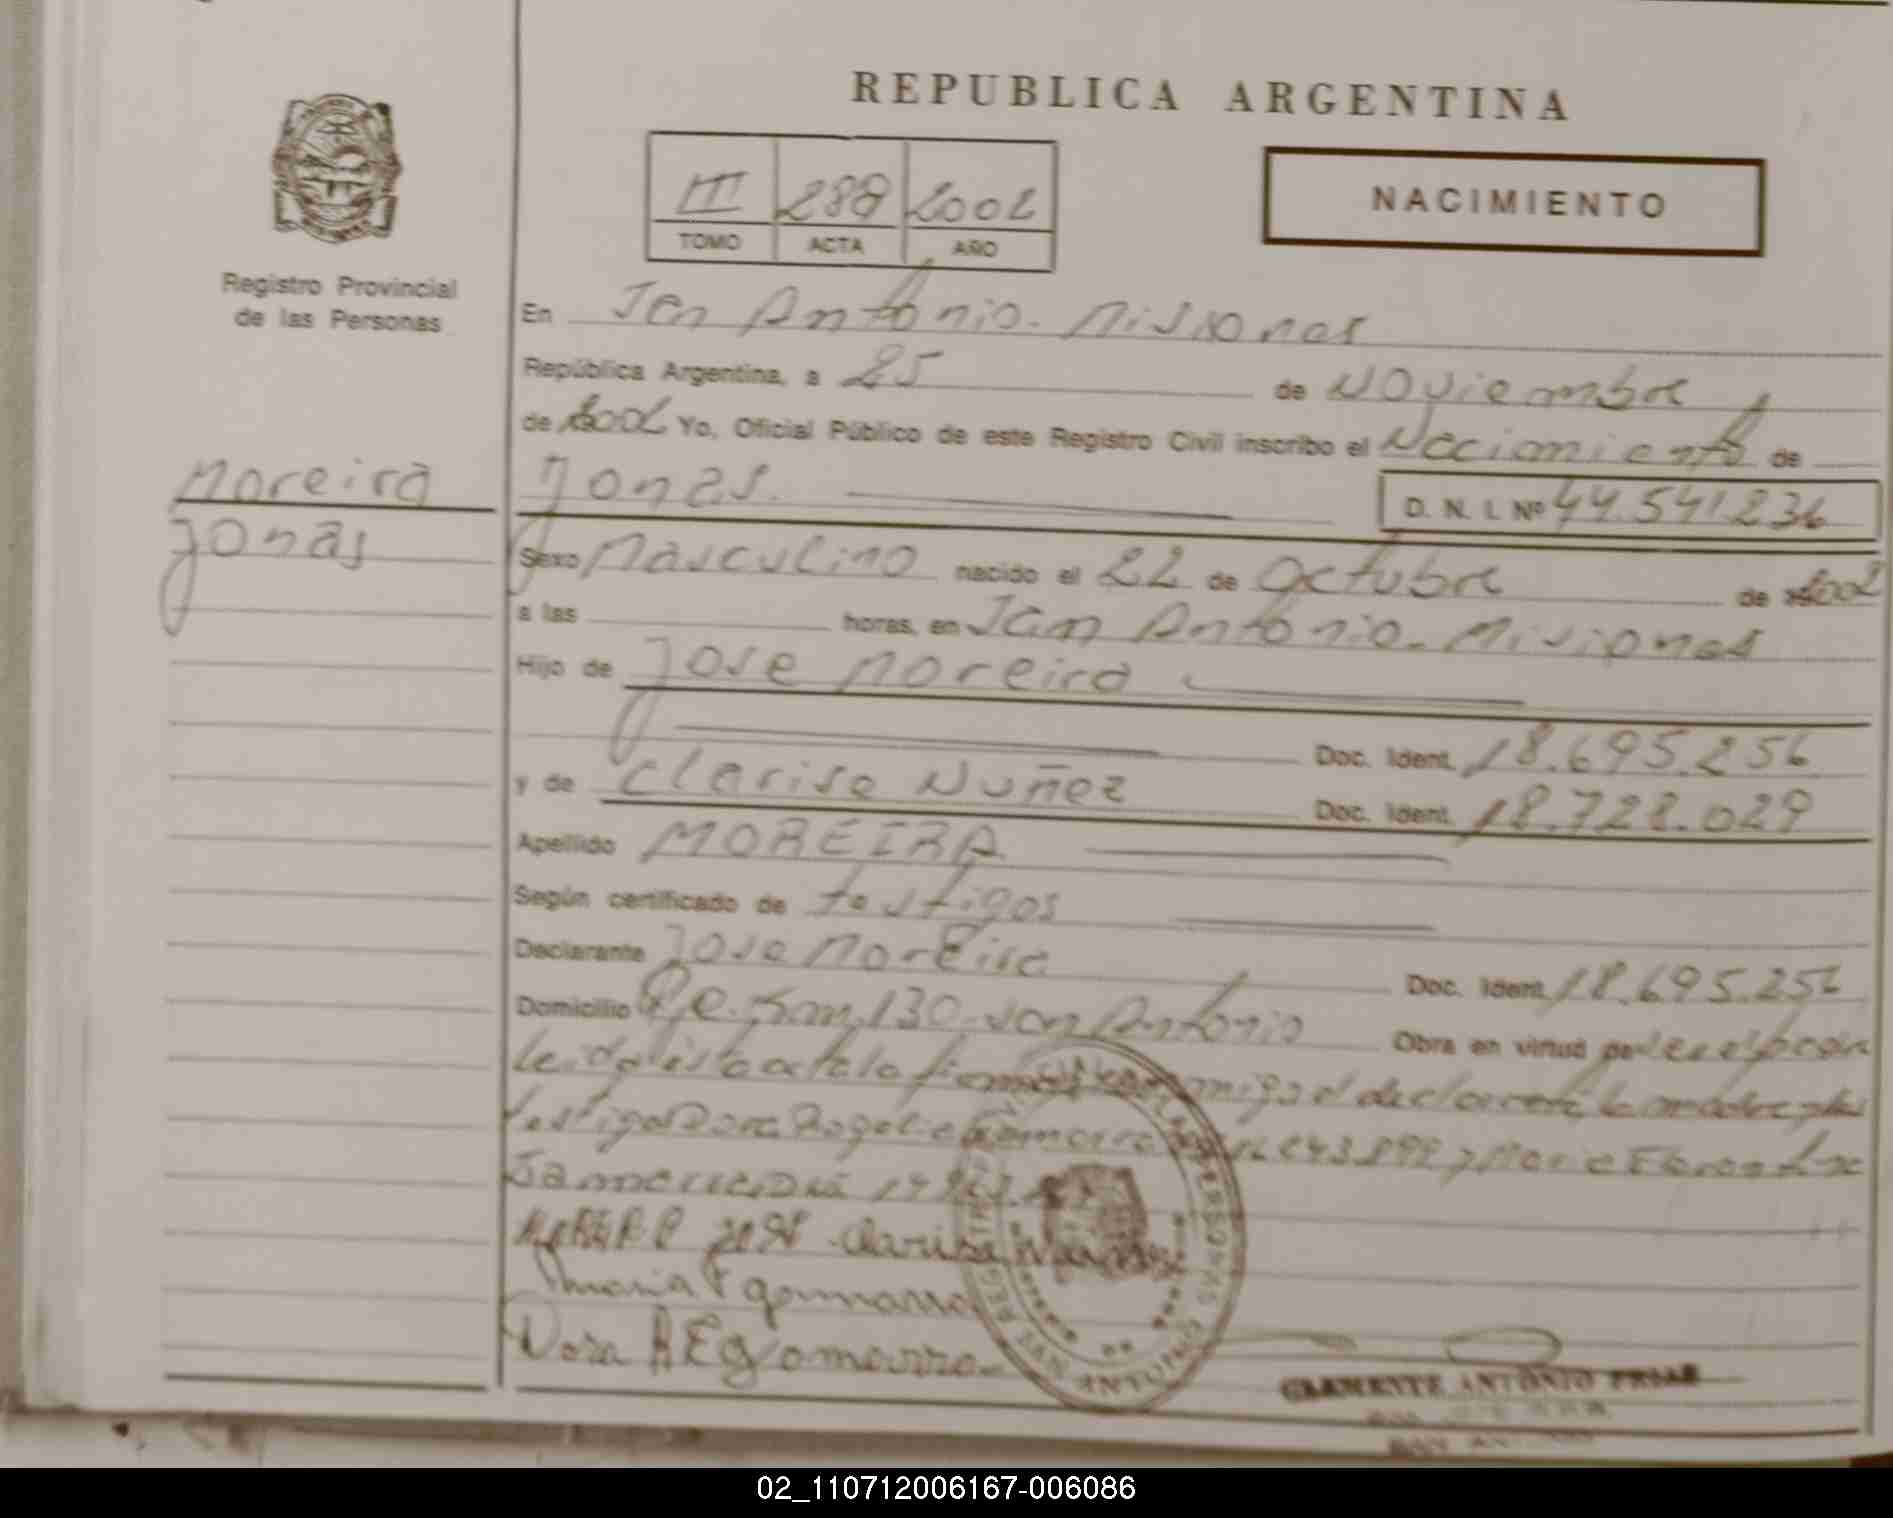 REPUBLICA ARGENTINA
III 288 2002
TOMO ACTA AÑO
NACIMIENTO
Registro Provincial
de las Personas
En San Antonio. Misiones
República Argentina, a 25 de Noviembre
de 2002 Yo, Oficial Público de este Registro Civil inscribo el Nacimiento de
Moreira
Jonas
Jonas.
D. N. I. Nº 44.541.236
Sexo Masculino nacido el 22 de Octubre de 2002
a las horas, en San Antonio. Misiones
Hijo de Jose Moreira
Doc. Ident. 18.695.256
y de Clarisa Nuñez Doc. Ident. 18.728.029
Apellido MOREIRA
Según certificado de testigos
Declarante Jose Moreira Doc. Ident. 18.695.256
Domicilio Pje. Km. 130. San Antonio Obra en virtud de
Leida esta acta la declarante la madre
testigos Dora
Clarisa
Maria F
Dora
CLEMENTE ANTONIO
SAN
02_110712006167-006086